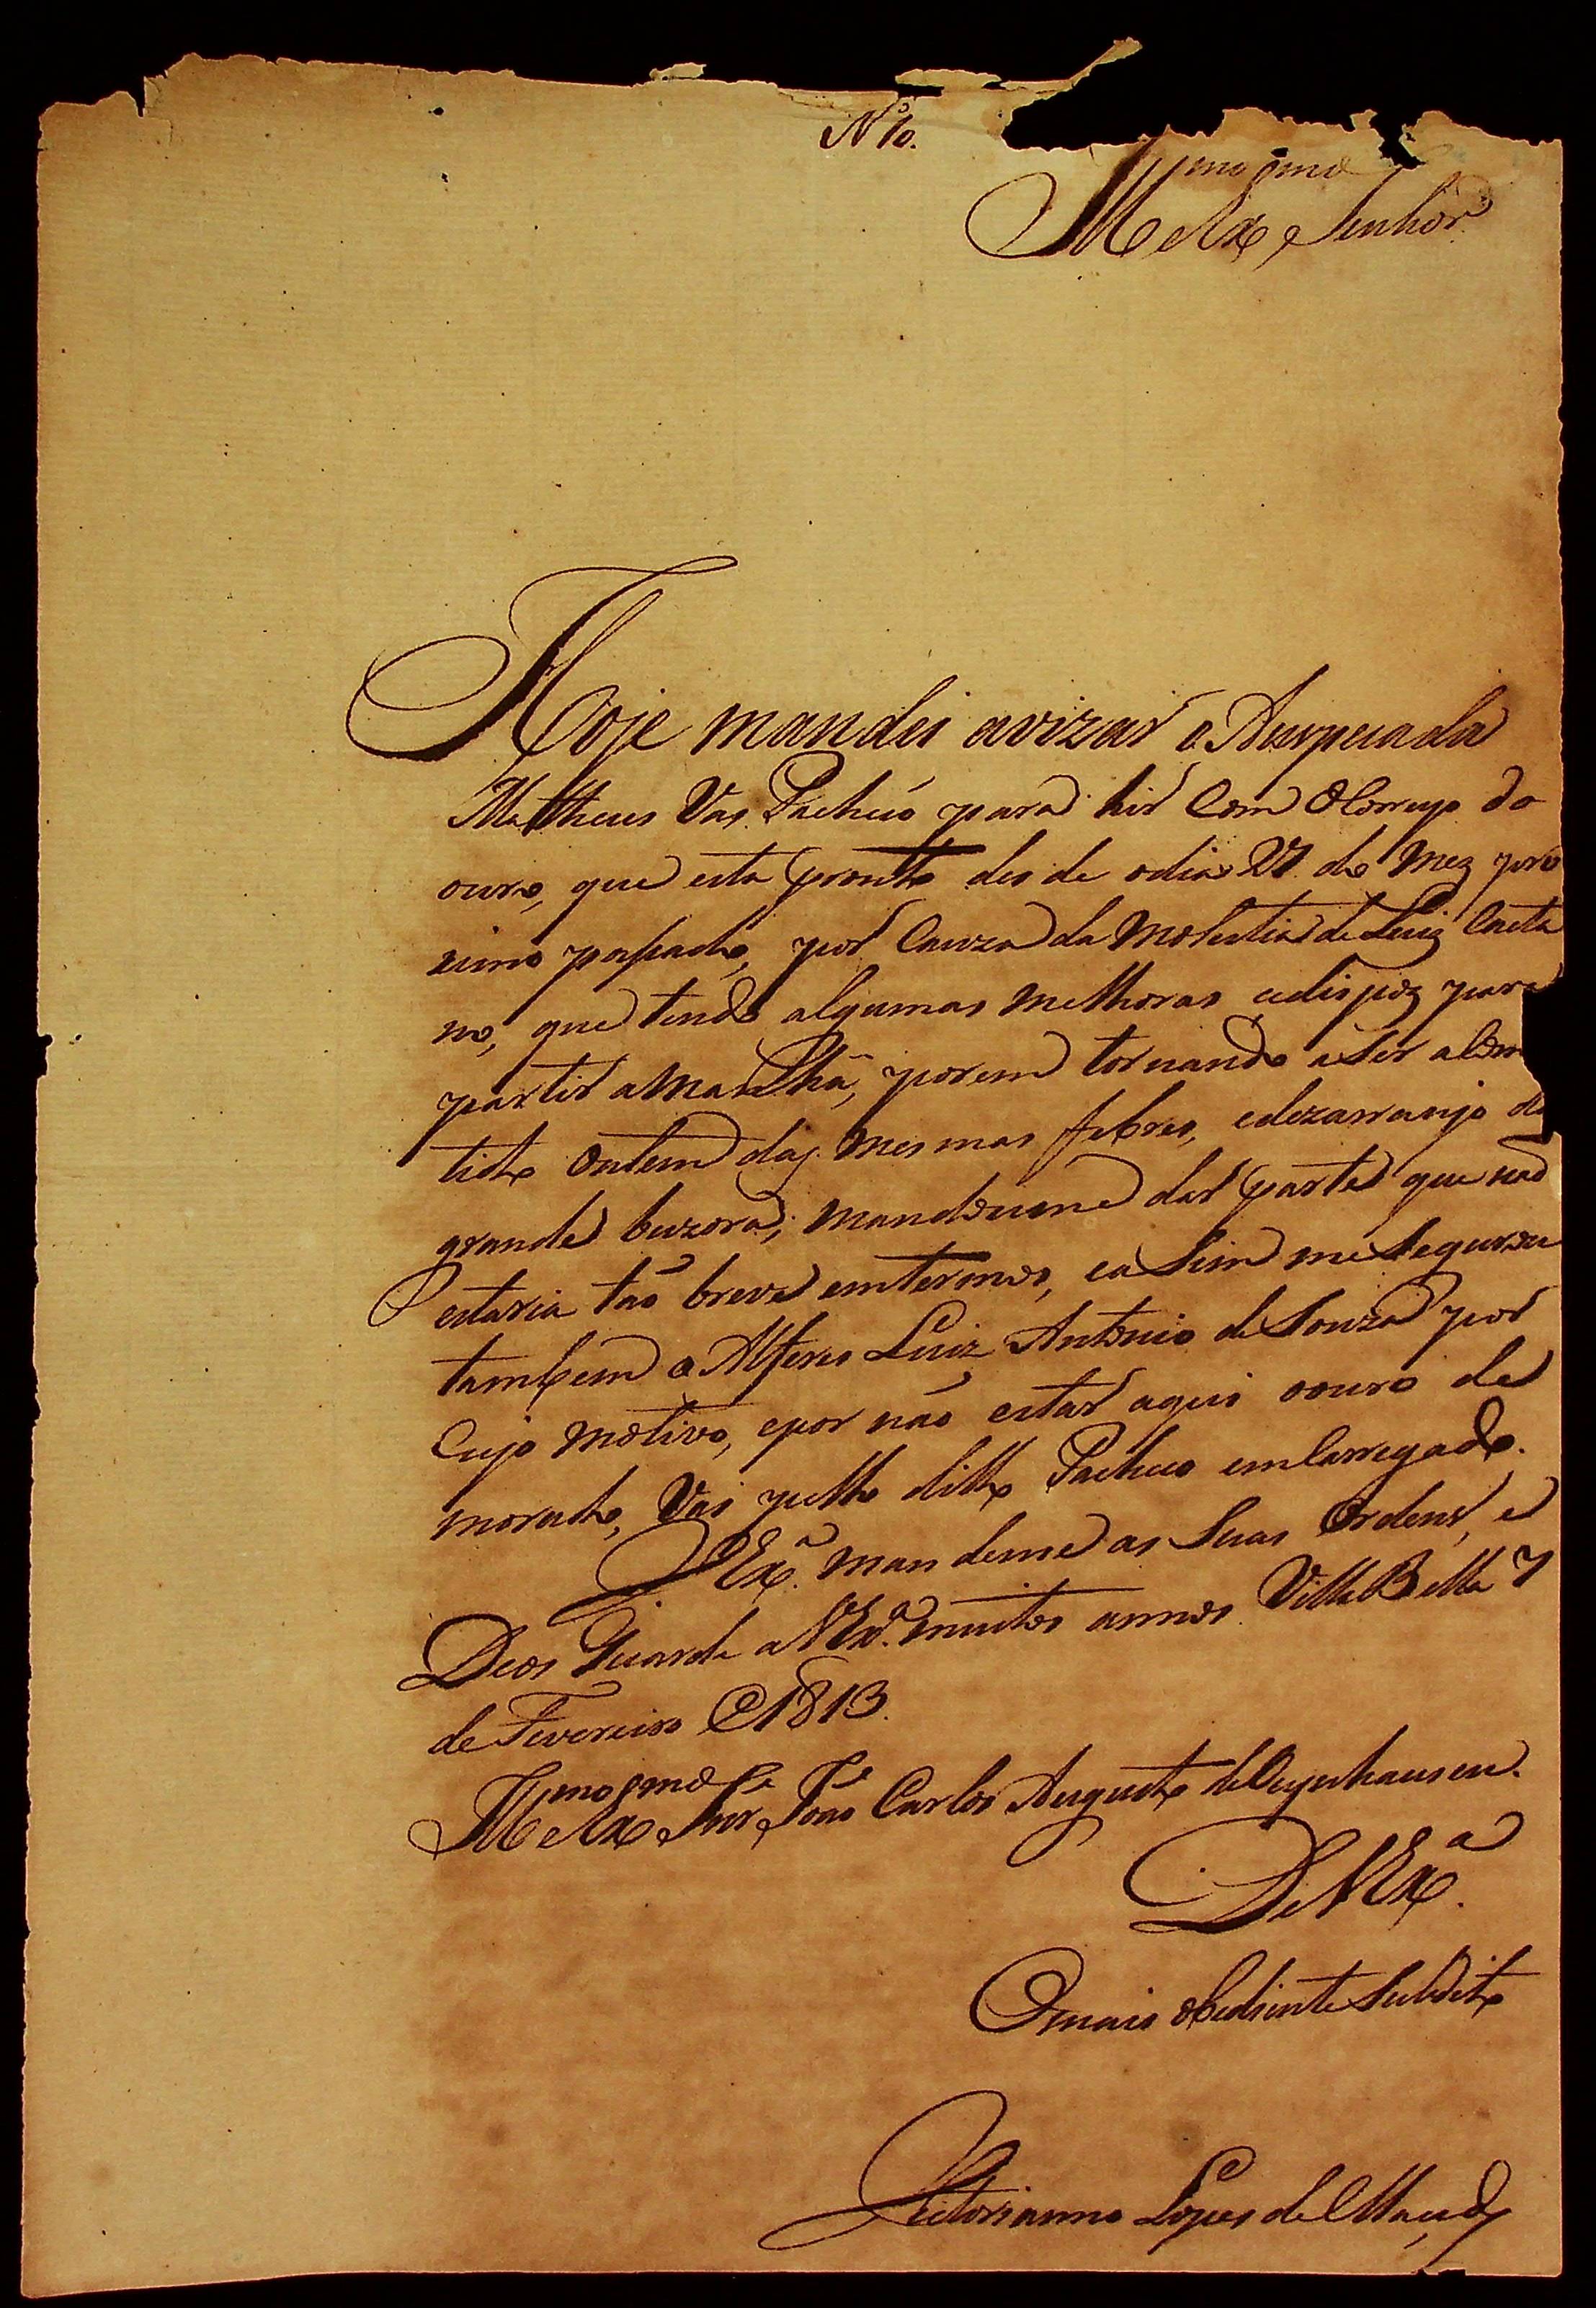 Nº 10.
Illmo e Exmo Senhor
Hoje mandei avizar o Anspeçada
Mattheus Vas Pacheco para hir Com o Correyo do
ouro, que esta prontto des de o dia 27. do Mez pro
ximo passado, por Cauza da Molestia de Luiz Caeta
no, que tendo algumas Melhoras, se dispoz para
partir a Manhã, porem tornando a Ser acome
tido Ontem das mesmas febres, e dezarranjo de
grande, mandoume dar parte que nao
estaria taõ breve em termos, e aSim me Segurou
tambem o Alferes Luiz Antonio de Souza por
Cujo Motivo, e por naõ estar aqui o ouro de
morado, Vai pello ditto Pacheco emCarregado.
VExª. mandeme as Suas Ordens, e
Deos Guarde a VExª. muitos annos. Villa Bella 7
de Fevereiro de 1813.
Illmo e Exmo Snr João Carlos Augusto de Oeynhausen.
De VExª.
O mais obediente Subdito
Victorianno Lopes de Macedo